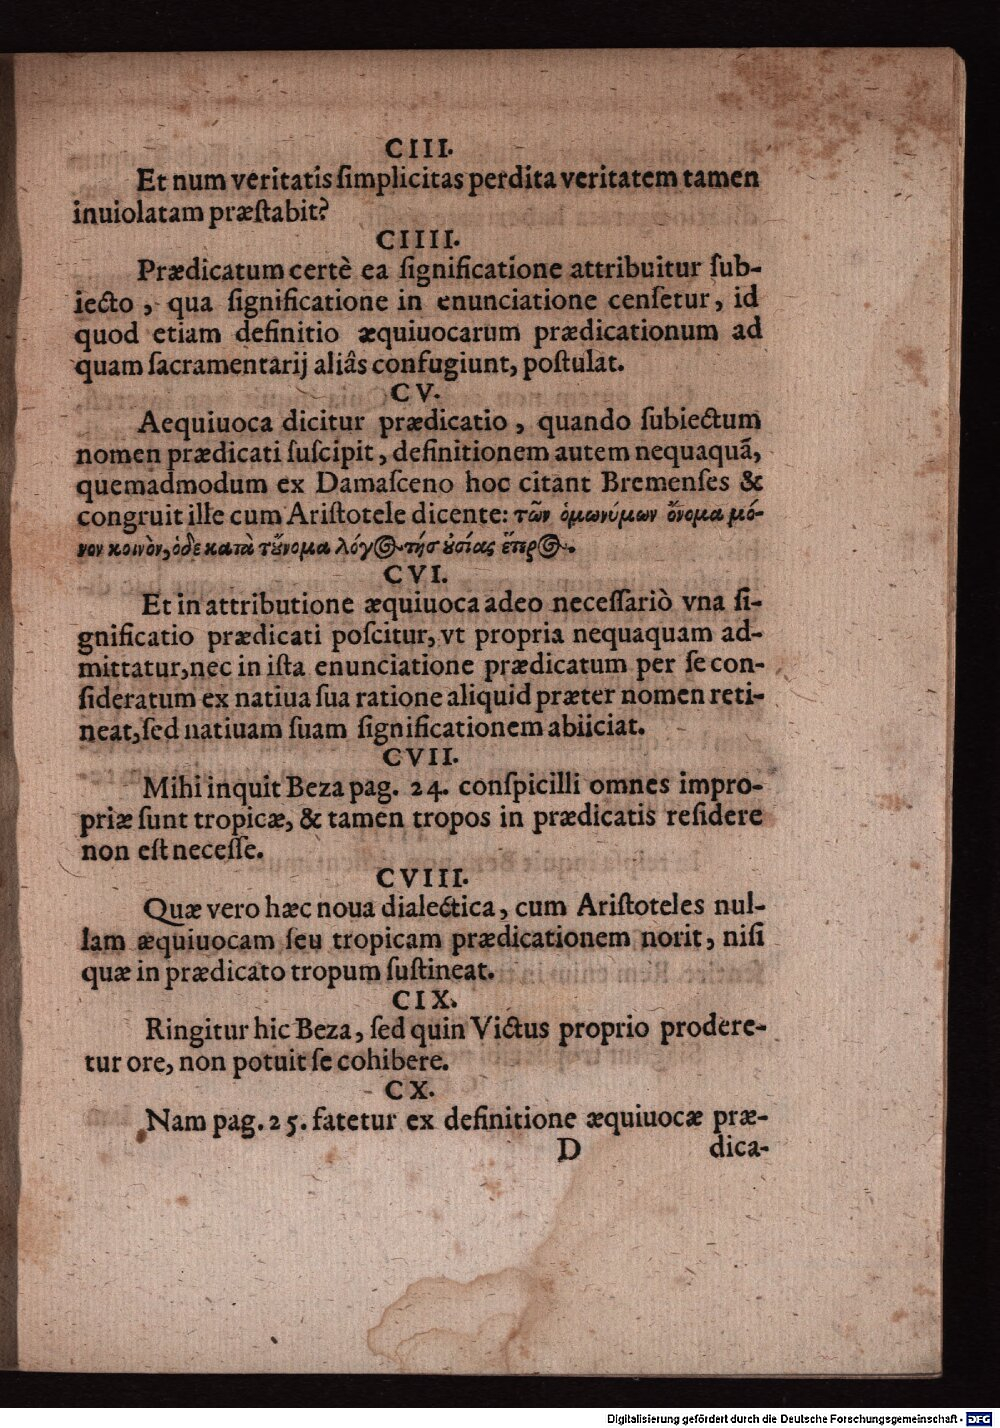 CIII.
Et num veritatis ſimplicitas perdita veritatem tamen
inuiolatam præſtabit?
CIIII.
Prædicatum certè ea ſignificatione attribuitur ſub-
iecto, qua ſignificatione in enunciatione cenſetur, id
quod etiam definitio æquiuocarum prædicationum ad
quam ſacramentarij aliâs confugiunt, poſtulat.
CV.
Aequiuoca dicitur prædicatio, quando ſubiectum
nomen prædicati ſuſcipit, definitionem autem nequaquã,
quemadmodum ex Damaſceno hoc citant Bremenſes &
congruit ille cum Ariſtotele dicente: τῶν ὁμωνύμων ὄνομα μό-
νον κοινὸν, ὁ δε κατὰ τ̓ύνομα λόγος τῆσ ȣσίας ἕτερος.
CVI.
Et in attributione æquiuoca adeo neceſſariò vna ſi-
gnificatio prædicati poſcitur, vt propria nequaquam ad-
mittatur, nec in iſta enunciatione prædicatum per ſe con-
ſideratum ex natiua ſua ratione aliquid præter nomen reti-
neat, ſed natiuam ſuam ſignificationem abiiciat.
CVII.
Mihi inquit Beza pag. 24. conſpicilli omnes impro-
priæ ſunt tropicæ, & tamen tropos in prædicatis reſidere
non eſt neceſſe.
CVIII.
Quæ vero hæc noua dialectica, cum Ariſtoteles nul-
lam æquiuocam ſeu tropicam prædicationem norit, niſi
quæ in prædicato tropum ſuſtineat.
CIX.
Ringitur hic Beza, ſed quin Victus proprio prodere-
tur ore, non potuit ſe cohibere.
CX.
Nam pag. 25. fatetur ex definitione æquiuocæ præ-
D dica-
Digitalisierung gefördert durch die Deutsche Forschungsgemeinschaft - DFG